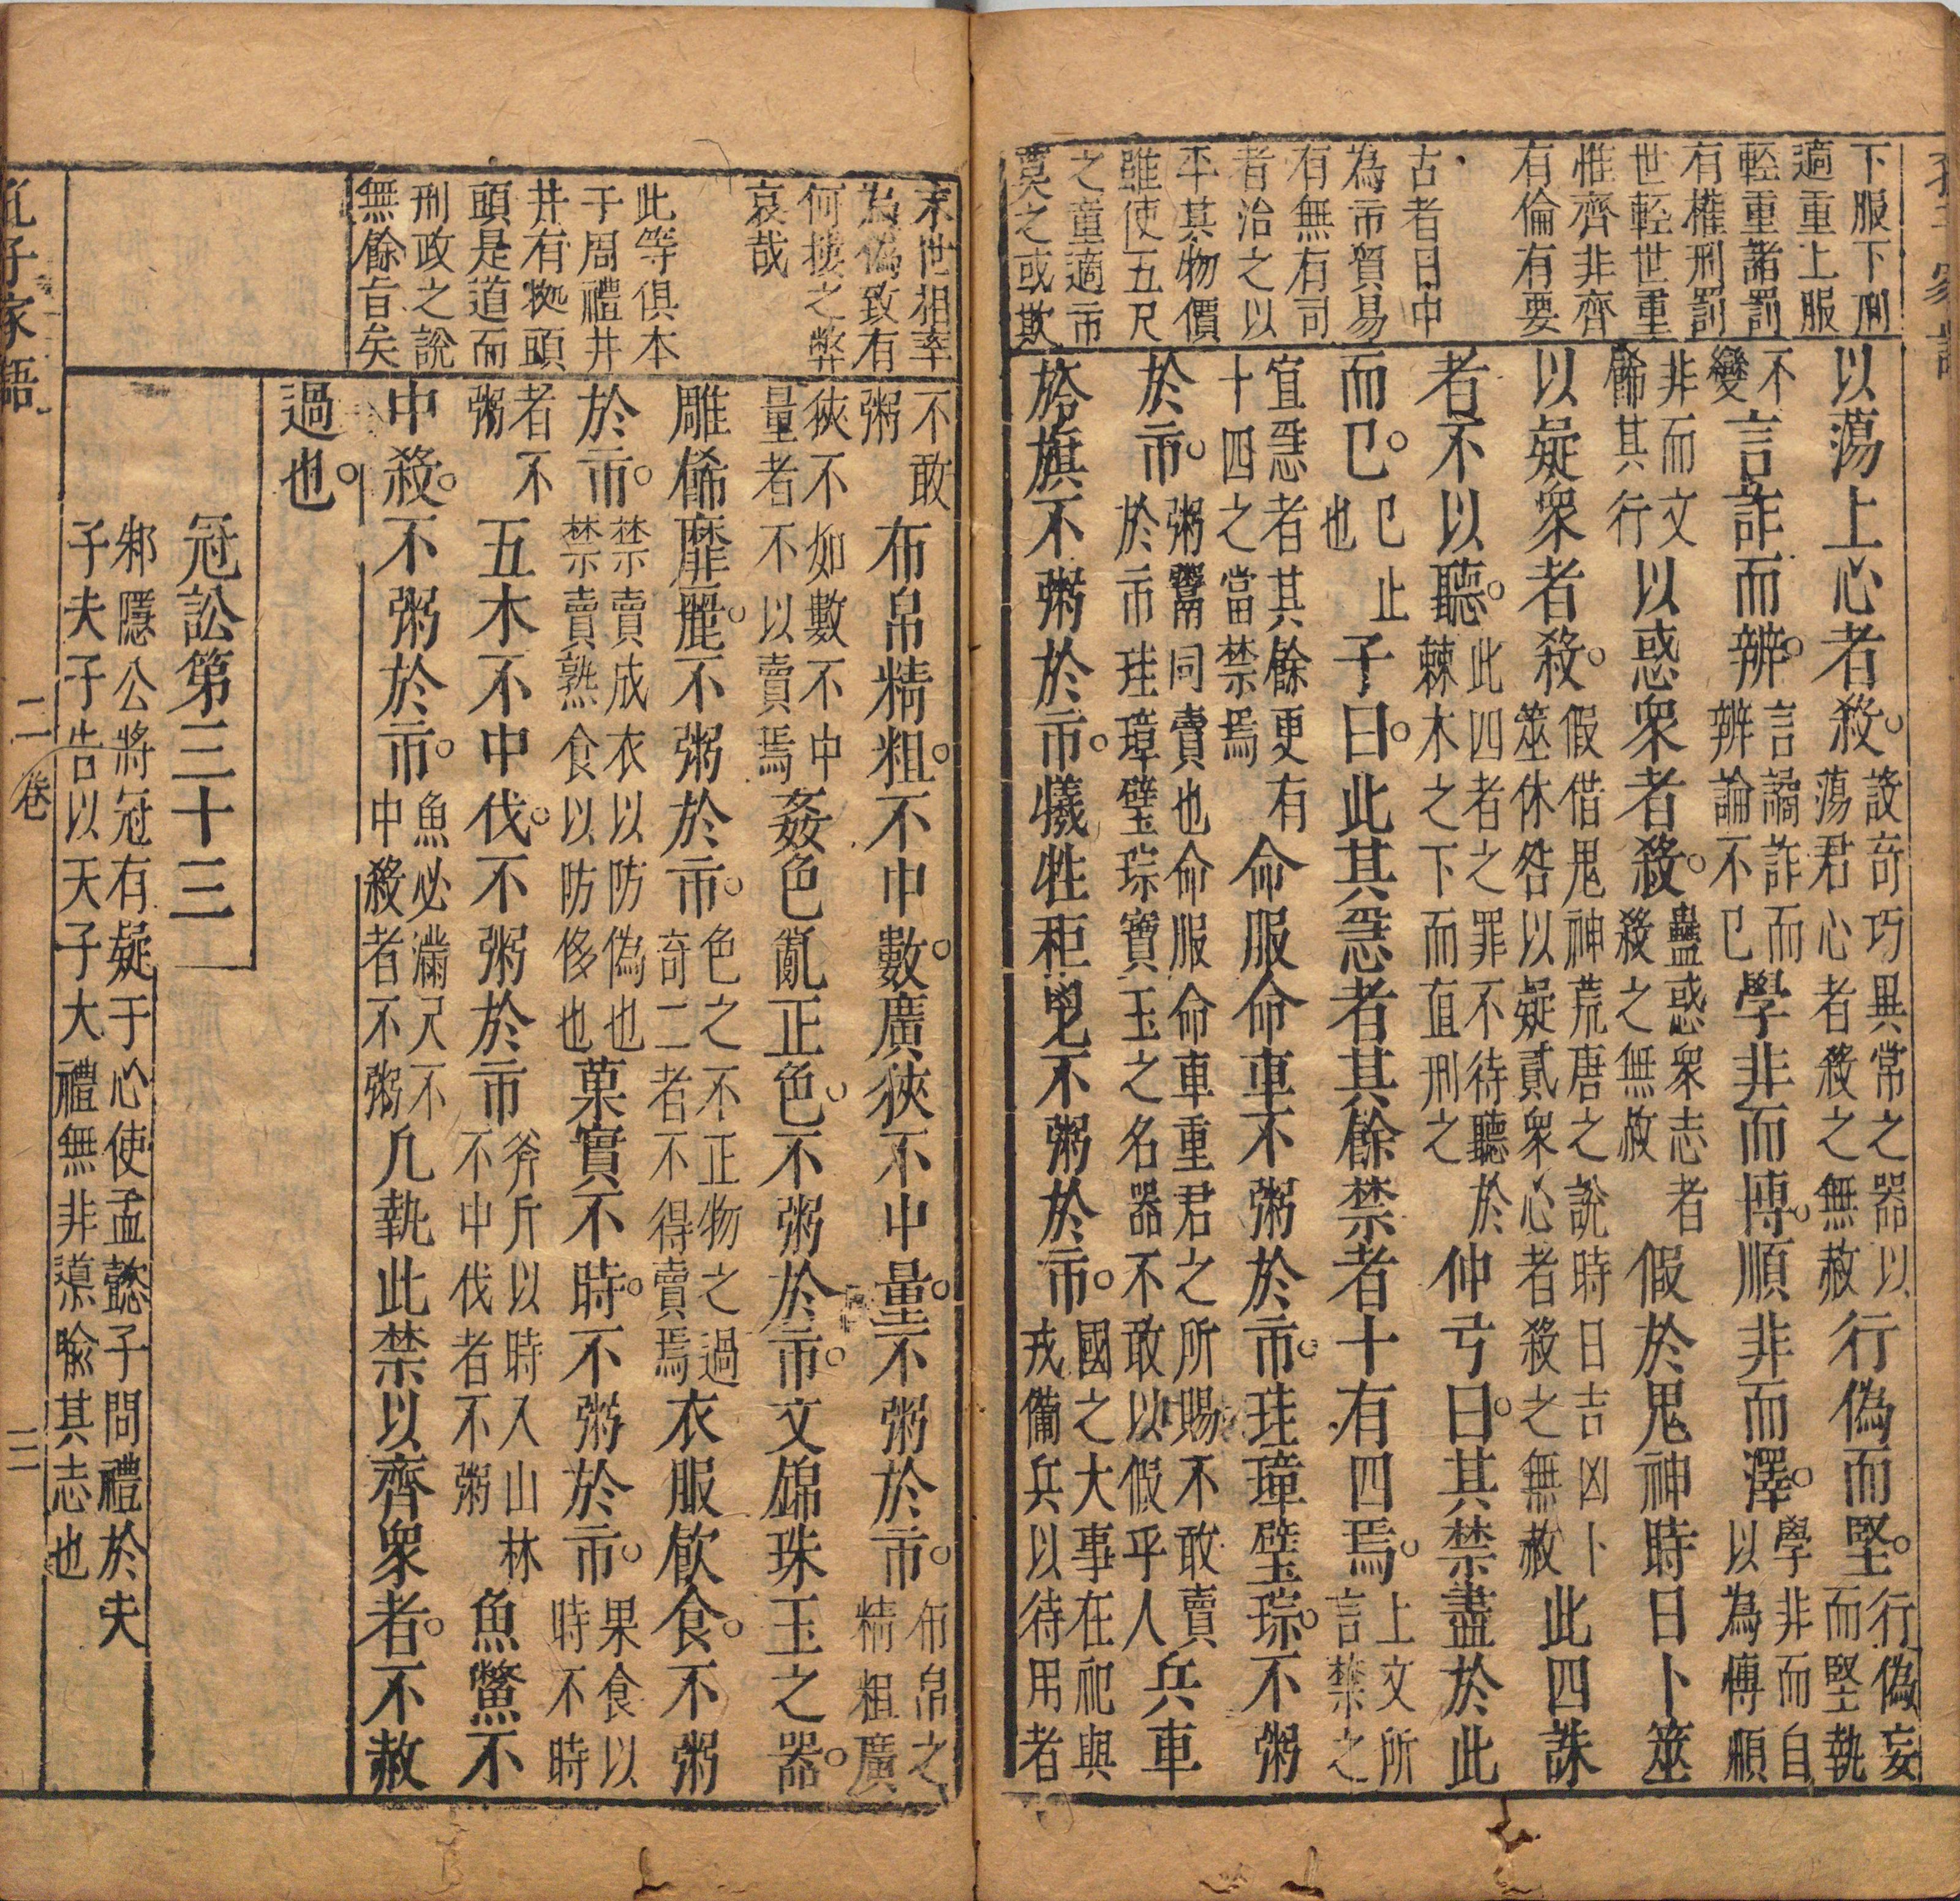 下服下刑
適重上服
輕重諸罰
有權刑罰
世輕世重
惟齊非齊
有倫有要
古者日中
為市貿易
有無有司
者治之以
平其物價
雖使五尺
之童適市
莫之或欺
以蕩上心者殺。設奇巧異常之器以蕩君心者殺之無赦行偽而堅。行偽妄而堅執
不變言詐而辨。言譎詐而辨論不已學非而博。順非而澤。學非而自以為博順
非而文飾其行以惑衆者殺。蠱惑衆志者殺之無赦假於鬼神時日卜筮
以疑衆者殺。假借鬼神荒唐之說時日吉凶卜筮休咎以疑貳衆心者殺之無赦此四誅
者不以聽。此四者之罪不待聽於棘木之下而直刑之仲弓曰。其禁盡於此
而已。已止也子曰。此其急者其餘禁者十有四焉。上文所言禁之
宜急者其餘更有十四之當禁焉命服命車不粥於市。珪璋璧琮。不粥
於市。粥鬻同賣也命服命車重君之所賜不敢賣於市珪璋璧琮寶玉之名器不敢以假乎人兵車
旍旗不粥於市。犧牲秬鬯不粥於市。國之大事在祀與戎備兵以待用者
末世相率
為偽致有
何摟之弊
哀哉
此等俱本
于周禮井
井有拠頭
頭是道而
刑政之說
無餘旨矣
不敢粥布帛精粗。不中數。廣狹不中量。不粥於市。布帛之精粗廣
狹不如數不中量者不以賣焉姦色亂正色。不粥於市。文錦珠玉之器。
雕餙靡麗。不粥於市。色之不正物之過奇二者不得賣焉衣服飲食。不粥
於市。禁賣成衣以防偽也禁賣熟食以防侈也菓實不時。不粥於市。果食以時不時
者不粥五木不中伐。不粥於市斧斤以時入山林不中伐者不粥魚鱉不
中殺。不粥於市。魚必滿尺不中殺者不粥凢執此禁以齊衆者。不赦
過也。
冠訟第三十三
邾隱公將冠有疑于心使孟懿子問禮於夫
子夫子告以天子大禮無非遵喩其志也
孔子家語
二卷
三